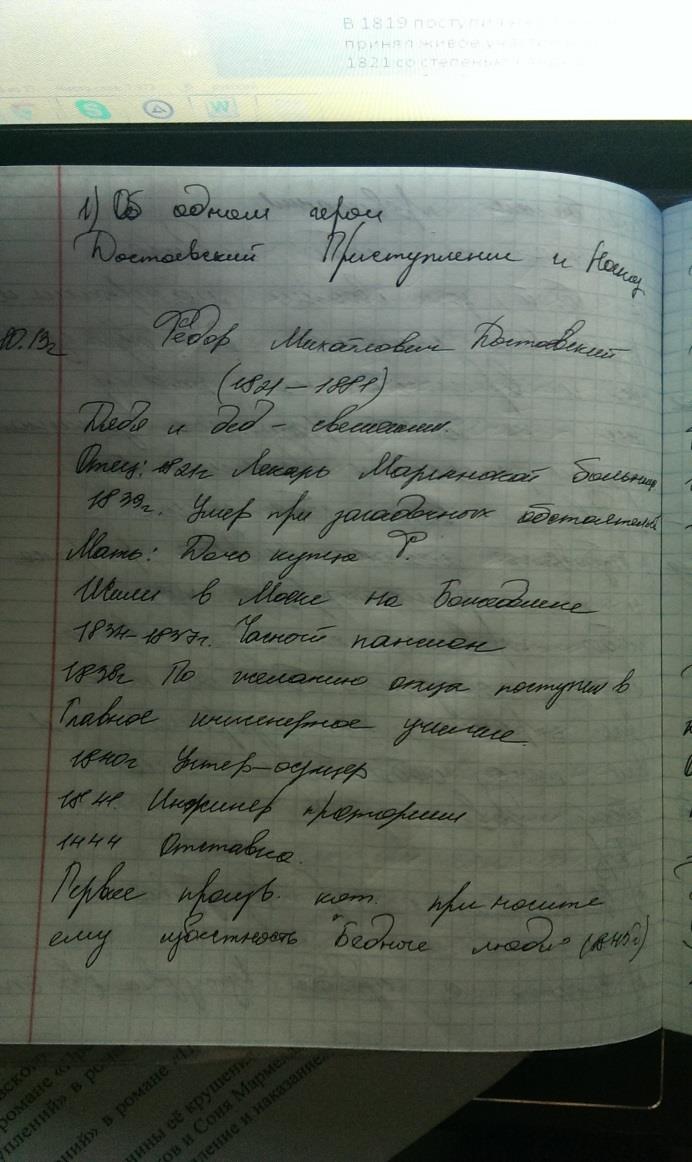 В 1819 поступил
принял живое участие
1821 со степенью
1) Об одном герои
Достоевский Приступление и Наказ
10.13г Фёдор Михайлович Достоевский
(1821 – 1881)
и дед – священник.
Отец: 1821г Лекарь Мариинской больниц
1839г. Умер при загадочных обстоятельс
Мать: Дочь купца
Жили в Москве на Божедомке
1834–1837г. Частный пансион
1838г По желанию отца поступил в
Главное инженерное училище.
1840г Унтер-офицер
1841. Инжинер
1444 Отставка.
Первое произв. кот. приносите
ему известность "Бедные люди" (1845г)
вского
романе «Пре
уплений» в ром
аний» в романе «П
ины её крушения
ков и Соня Мармела
пление и наказание»